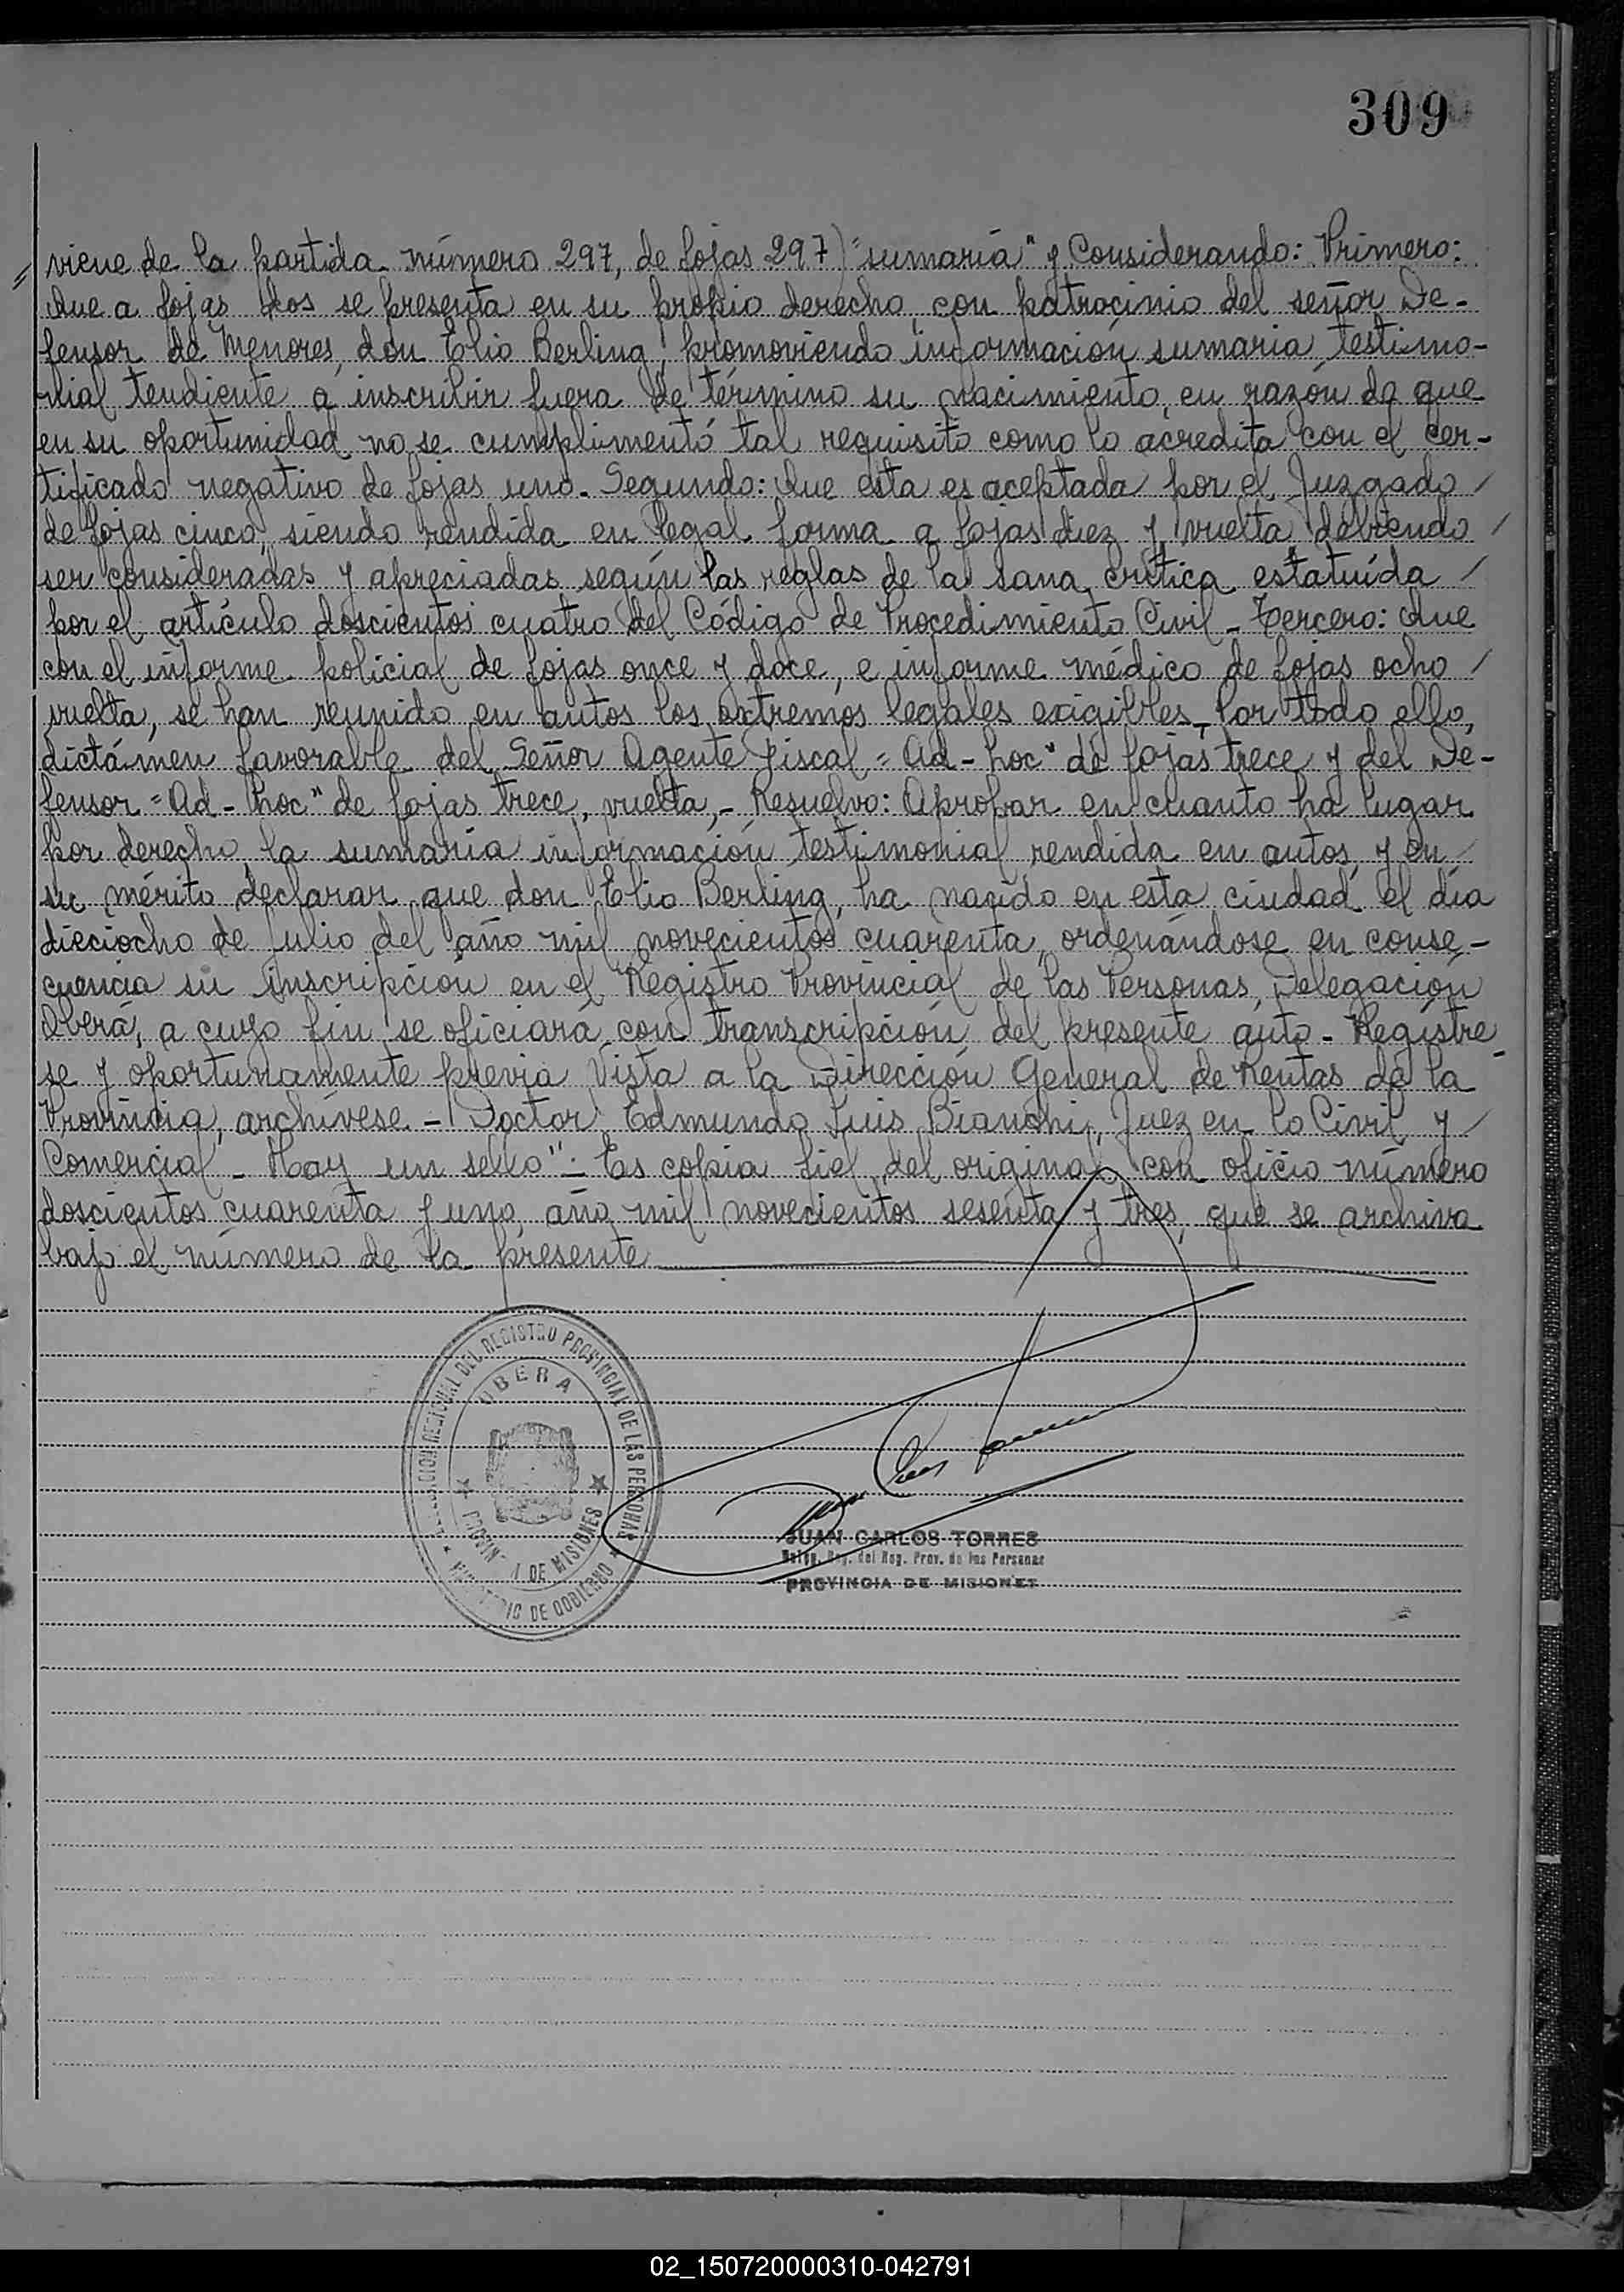 309
viene de la partida número 297, de fojas 297) "sumaria" y Considerando: Primero:
Que a fojas dos se presenta en su propio derecho, con patrocinio del señor De-
fensor de Menores, don Elio Berling, promoviendo información sumaria testimo-
nial tendiente a inscribir fuera de término su nacimiento, en razón de que
en su oportunidad no se cumplimentó tal requisito como lo acredita con el cer-
tificado negativo de fojas uno. Segundo: Que esta es aceptada por el Juzgado /
de fojas cinco, siendo rendida en legal forma a fojas diez y vuelta debiendo /
ser consideradas y apreciadas según las reglas de la sana crítica estatuída /
por el artículo doscientos cuatro del Código de Procedimiento Civil - Tercero: Que
con el informe policial de fojas once y doce, e informe médico de fojas ocho /
vuelta, se han reunido en autos los extremos legales exigibles, Por todo ello,
dictámen favorable del Señor Agente Fiscal = Ad-hoc" de fojas trece y del De-
fensor = Ad-hoc" de fojas trece, vuelta, - Resuelvo: Aprobar en cuanto ha lugar
por derecho, la sumaria información testimonial rendida en autos, y en
su mérito declarar que don Elio Berling, ha nacido en esta ciudad el día
dieciocho de Julio del año mil novecientos cuarenta, ordenándose en conse-
cuencia su inscripción en el Registro Provincial de las Personas, Delegación
Oberá, a cuyo fin se oficiará con transcripción del presente auto - Regístre-
se y oportunamente previa Vista a la Dirección General de Rentas de la
Provincia, archívese. - Doctor Edmundo Luis Bianchi, Juez en lo Civil y /
Comercial - Hay un sello" - Es copia fiel del original con oficio número
doscientos cuarenta y uno, año mil novecientos sesenta y tres, que se archiva
bajo el número de la presente
DELEGACION REGIONAL DEL REGISTRO PROVINCIAL DE LAS PERSONAS
OBERA
DE MISIONES
DE GOBIERNO
JUAN CARLOS TORRES
del Reg. Prov. de las Personas
PROVINCIA DE MISIONES
02_150720000310-042791